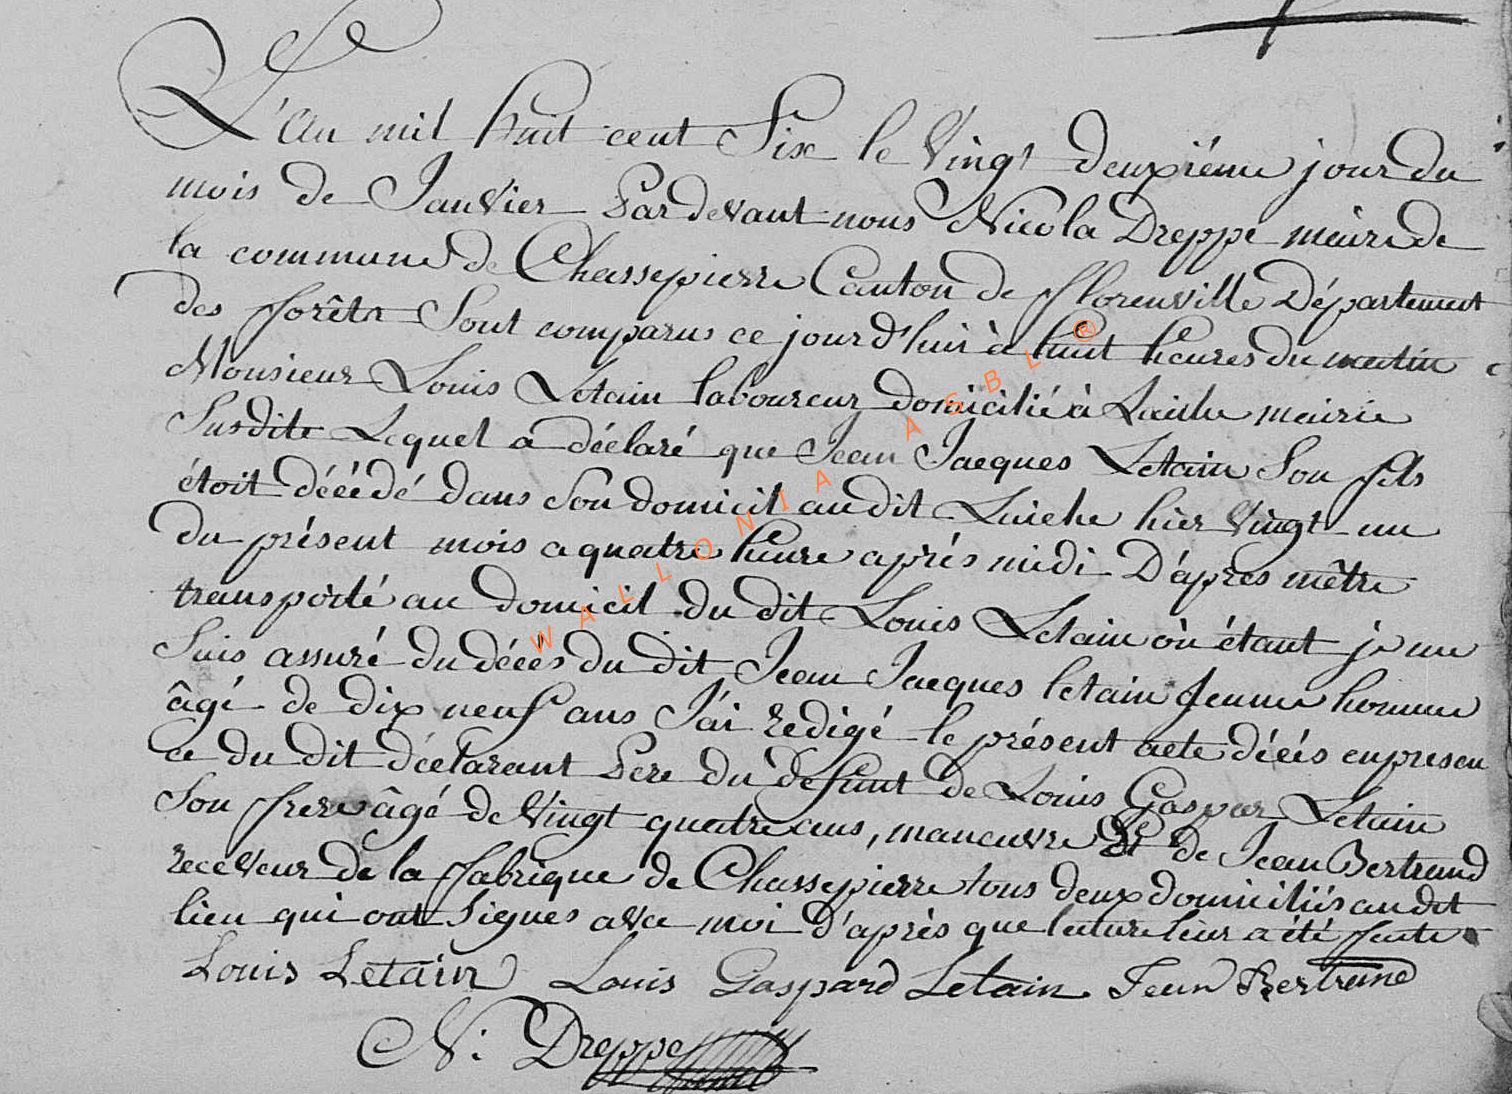 L'an mil huit cent Six le Vingt deuxiéme jour du
mois de Janvier Pardevant nous Nicola Dreppe maire de
la commune de Chassepierre Canton de fflorenville Département
des fforêts Sont comparus ce jourd'hui à huit heures du matin
Monsieur Louis Letain laboureur domicilié à Laiche mairie
Susdite Lequel a déclaré que Jean Jacques Letain Son fils
étoit décédé dans Son domicil audit Laiche hier Vingt un
du présent mois a quatre heure aprés midi D'après mêtre
transporté au domicil du dit Louis Letain où étant je me
Suis assuré du décés du dit Jean Jacques letain Jeune homme
âgé de dix neuf ans J'ai redigé le présent acte décés en presen
ce du dit déclarant Pere du defunt de Louis Gaspar Letain
Son frere âgé de Vingt quatre ans, manœuvre Et de Jean Bertrand
receveur de la ffabrique de Chassepierre tous deux domiciliés audit
lieu qui ont Signés avec moi d'après que lecture leur a été faite
Louis Letain Louis Gaspard Letain Jean Bertrand
N. Dreppe
WALLONIA ASBL ®